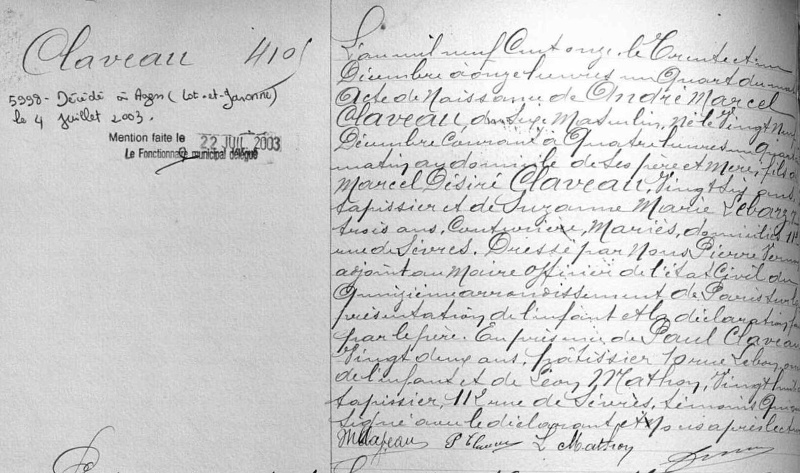 Claveau 410
5998 - Décédé à Agen (Lot-et-Garonne)
le 4 juillet 2003.
Mention faite le 22 JUIL 2003
Le Fonctionnaire municipal délégué
L'an mil neuf Cent onze, le Trente et un
Décembre à onze heures un Quart du mat
Acte de Naissance de André Marcel
CLAVEAU, du Sexe Masculin, né le Vingt Neuf
Décembre Courant à Quatre heures un
matin, au domicile de Ses père et Mère, fils de
Marcel Désiré CLAVEAU, Vingt Six ans,
tapissier et de Suzanne Marie Lebarz
trois ans, Couturière, Mariés, domiciliés 11
rue de Sèvres. Dressé par Nous, Pierre
adjoint au Maire Officier de l'état Civil du
Quinzième arrondissement de Paris sur la
présentation de l'enfant et la déclaration
par le père. En présence de Paul Claveau
Vingt deux ans, pâtissier 10 rue
de l'enfant et de Léon Mathoy, Vingt
tapissier, 11 rue de Sèvres, témoins Qui
signé avec le déclarant et Nous après lecture
L Mathoy